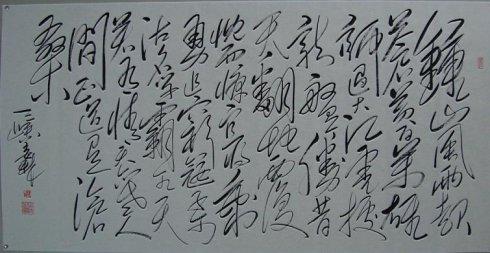 鍾山風雨起
蒼黃百萬雄
師過大江虎踞
龍盤今勝昔
天翻地覆
慨而慷宜將剩
勇追窮寇不可
沽名學霸王天
若有情天亦老人
間正道是滄
桑